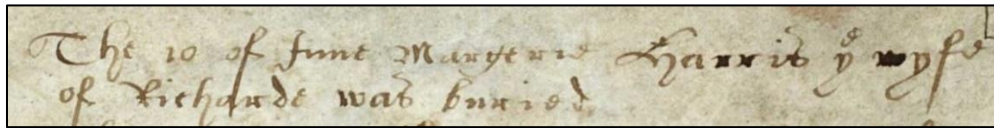 The 10 of June Margerie Harris yᵉ wyfe
of Richarde was buried